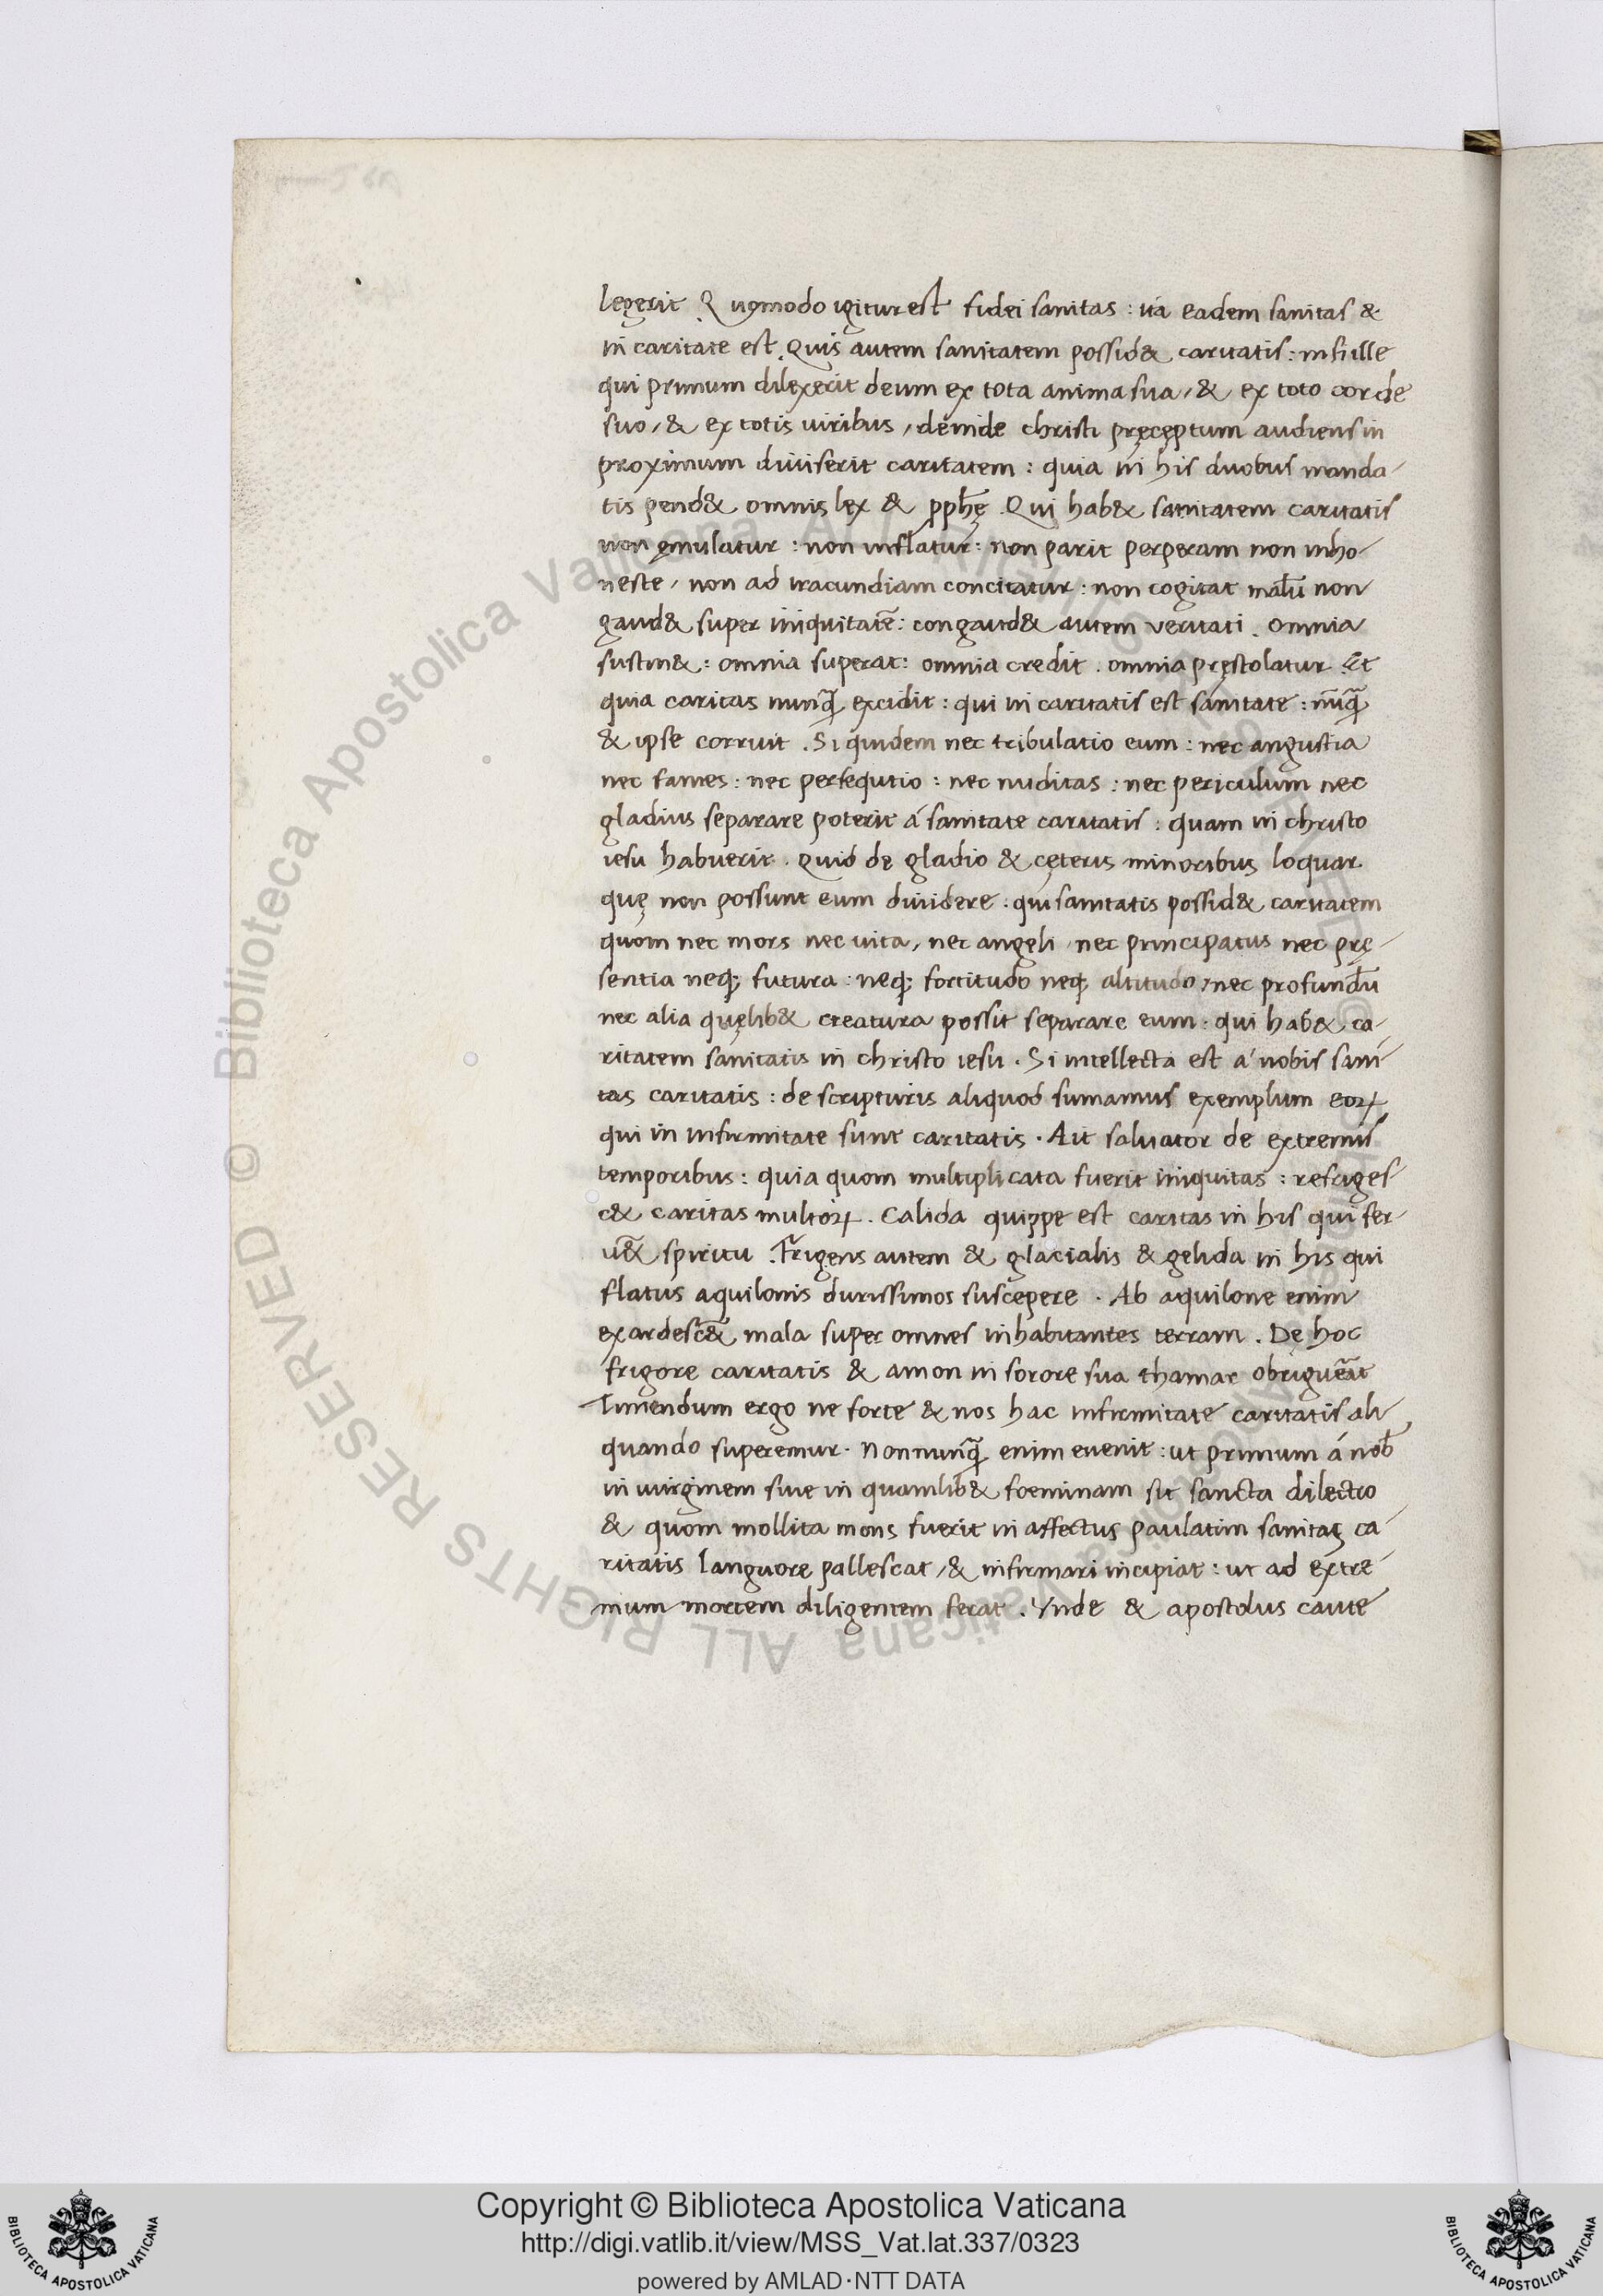 legerit Quomodo igitur est fidei sanitas : ita eadem sanitas &
in caritate est. Quis autem sanitatem possid& caritatis : nisi ille
qui primum dilexerit deum ex tota anima sua, & ex toto corde
suo, & ex totis uiribus, deinde christi pręcęptum audiens in
proximum diuiserit caritatem : quia in his duobus manda-
tis pend& omnis lex & ꝓph̄ę. Qui hab& sanitatem caritatis
non ęmulatur : non inflatur : non parit perperam non inho-
neste, non ad iracundiam concitatur : non cogitat malū non
gaud& super iniquitatē : congaud& autem veritati. omnia
sustin& : omnia superat : omnia credit. omnia pręstolatur. Et
quia caritas nunq̄ excidit : qui in caritatis est sanitate : nūq̄
& ipse corruit. Si quidem nec tribulatio eum : nec angustia
nec fames : nec persequtio : nec nuditas : nec periculum nec
gladius separare poterit á sanitate caritatis : quam in christo
iesu habuerit. Quid de gladio & cęteris minoribus loquar
quę non possunt eum diuidere. qui sanitatis possid& caritatem
quom nec mors nec uita, nec angeli, nec principatus nec prę-
sentia neq; futura : neq; fortitudo neq; altitudo, nec profundū
nec alia quęlib& creatura possit separare eum. qui hab& ca-
ritatem sanitatis in christo iesu. Si intellecta est á nobis sani-
tas caritatis : de scripturis aliquod sumamus exemplum eoꝝ
qui in infirmitate sunt caritatis. Ait saluator de extremis
temporibus : quia quom multiplicata fuerit iniquitas : refriges-
c& caritas multoꝝ. Calida quippe est caritas in his qui fer-
u&̄ spiritu. Frigens autem & glacialis & gelida in his qui
flatus aquilonis durissimos suscepere. Ab aquilone enim
exardesc&̄ mala super omnes inhabitantes terram. De hoc
frigore caritatis & amon in sorore sua thamar obriguēat
Timendum ergo ne forte & nos hac infirmitate caritatis ali-
quando superemur. Nonnunq̄ enim euenit : ut primum á nob̄
in uirginem siue in quamlib& foeminam sit sancta dilectio
& quom mollita mens fuerit in affectus paulatim sanitas ca-
ritatis languore pallescat, & infirmari incipiat : ut ad extre-
mum mortem diligentem ferat. Vnde & apostolus caute
Copyright © Biblioteca Apostolica Vaticana
http://digi.vatlib.it/view/MSS_Vat.lat.337/0323
powered by AMLAD·NTT DATA
BIBLIOTECA APOSTOLICA VATICANA
BIBLIOTECA APOSTOLICA VATICANA